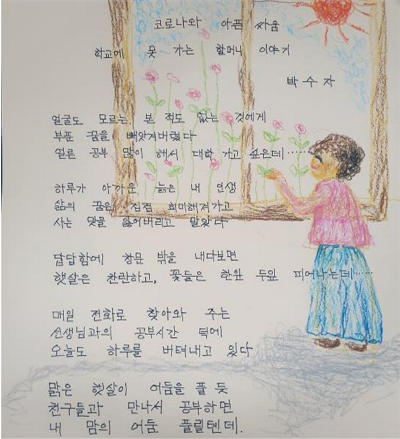 코로나와 아픈 싸움
학교에 못 가는 할머니 이야기
박수자
얼굴도 모르는, 본 적도 없는 것에게
부푼 꿈을 빼앗겨버렸다
얼른 공부 많이 해서 대학 가고 싶은데……
하루가 아까운 늙은 내 인생
삶의 꿈은 점점 희미해져가고
사는 맛을 잃어버리고 말았다
답답함에 창문 밖을 내다보면
햇살은 찬란하고, 꽃들은 한잎 두잎 피어나는데……
매일 전화로 찾아와 주는
선생님과의 공부시간 덕에
오늘도 하루를 버텨내고 있다
맑은 햇살이 어둠을 풀 듯
친구들과 만나서 공부하면
내 맘의 어둠 풀릴텐데.